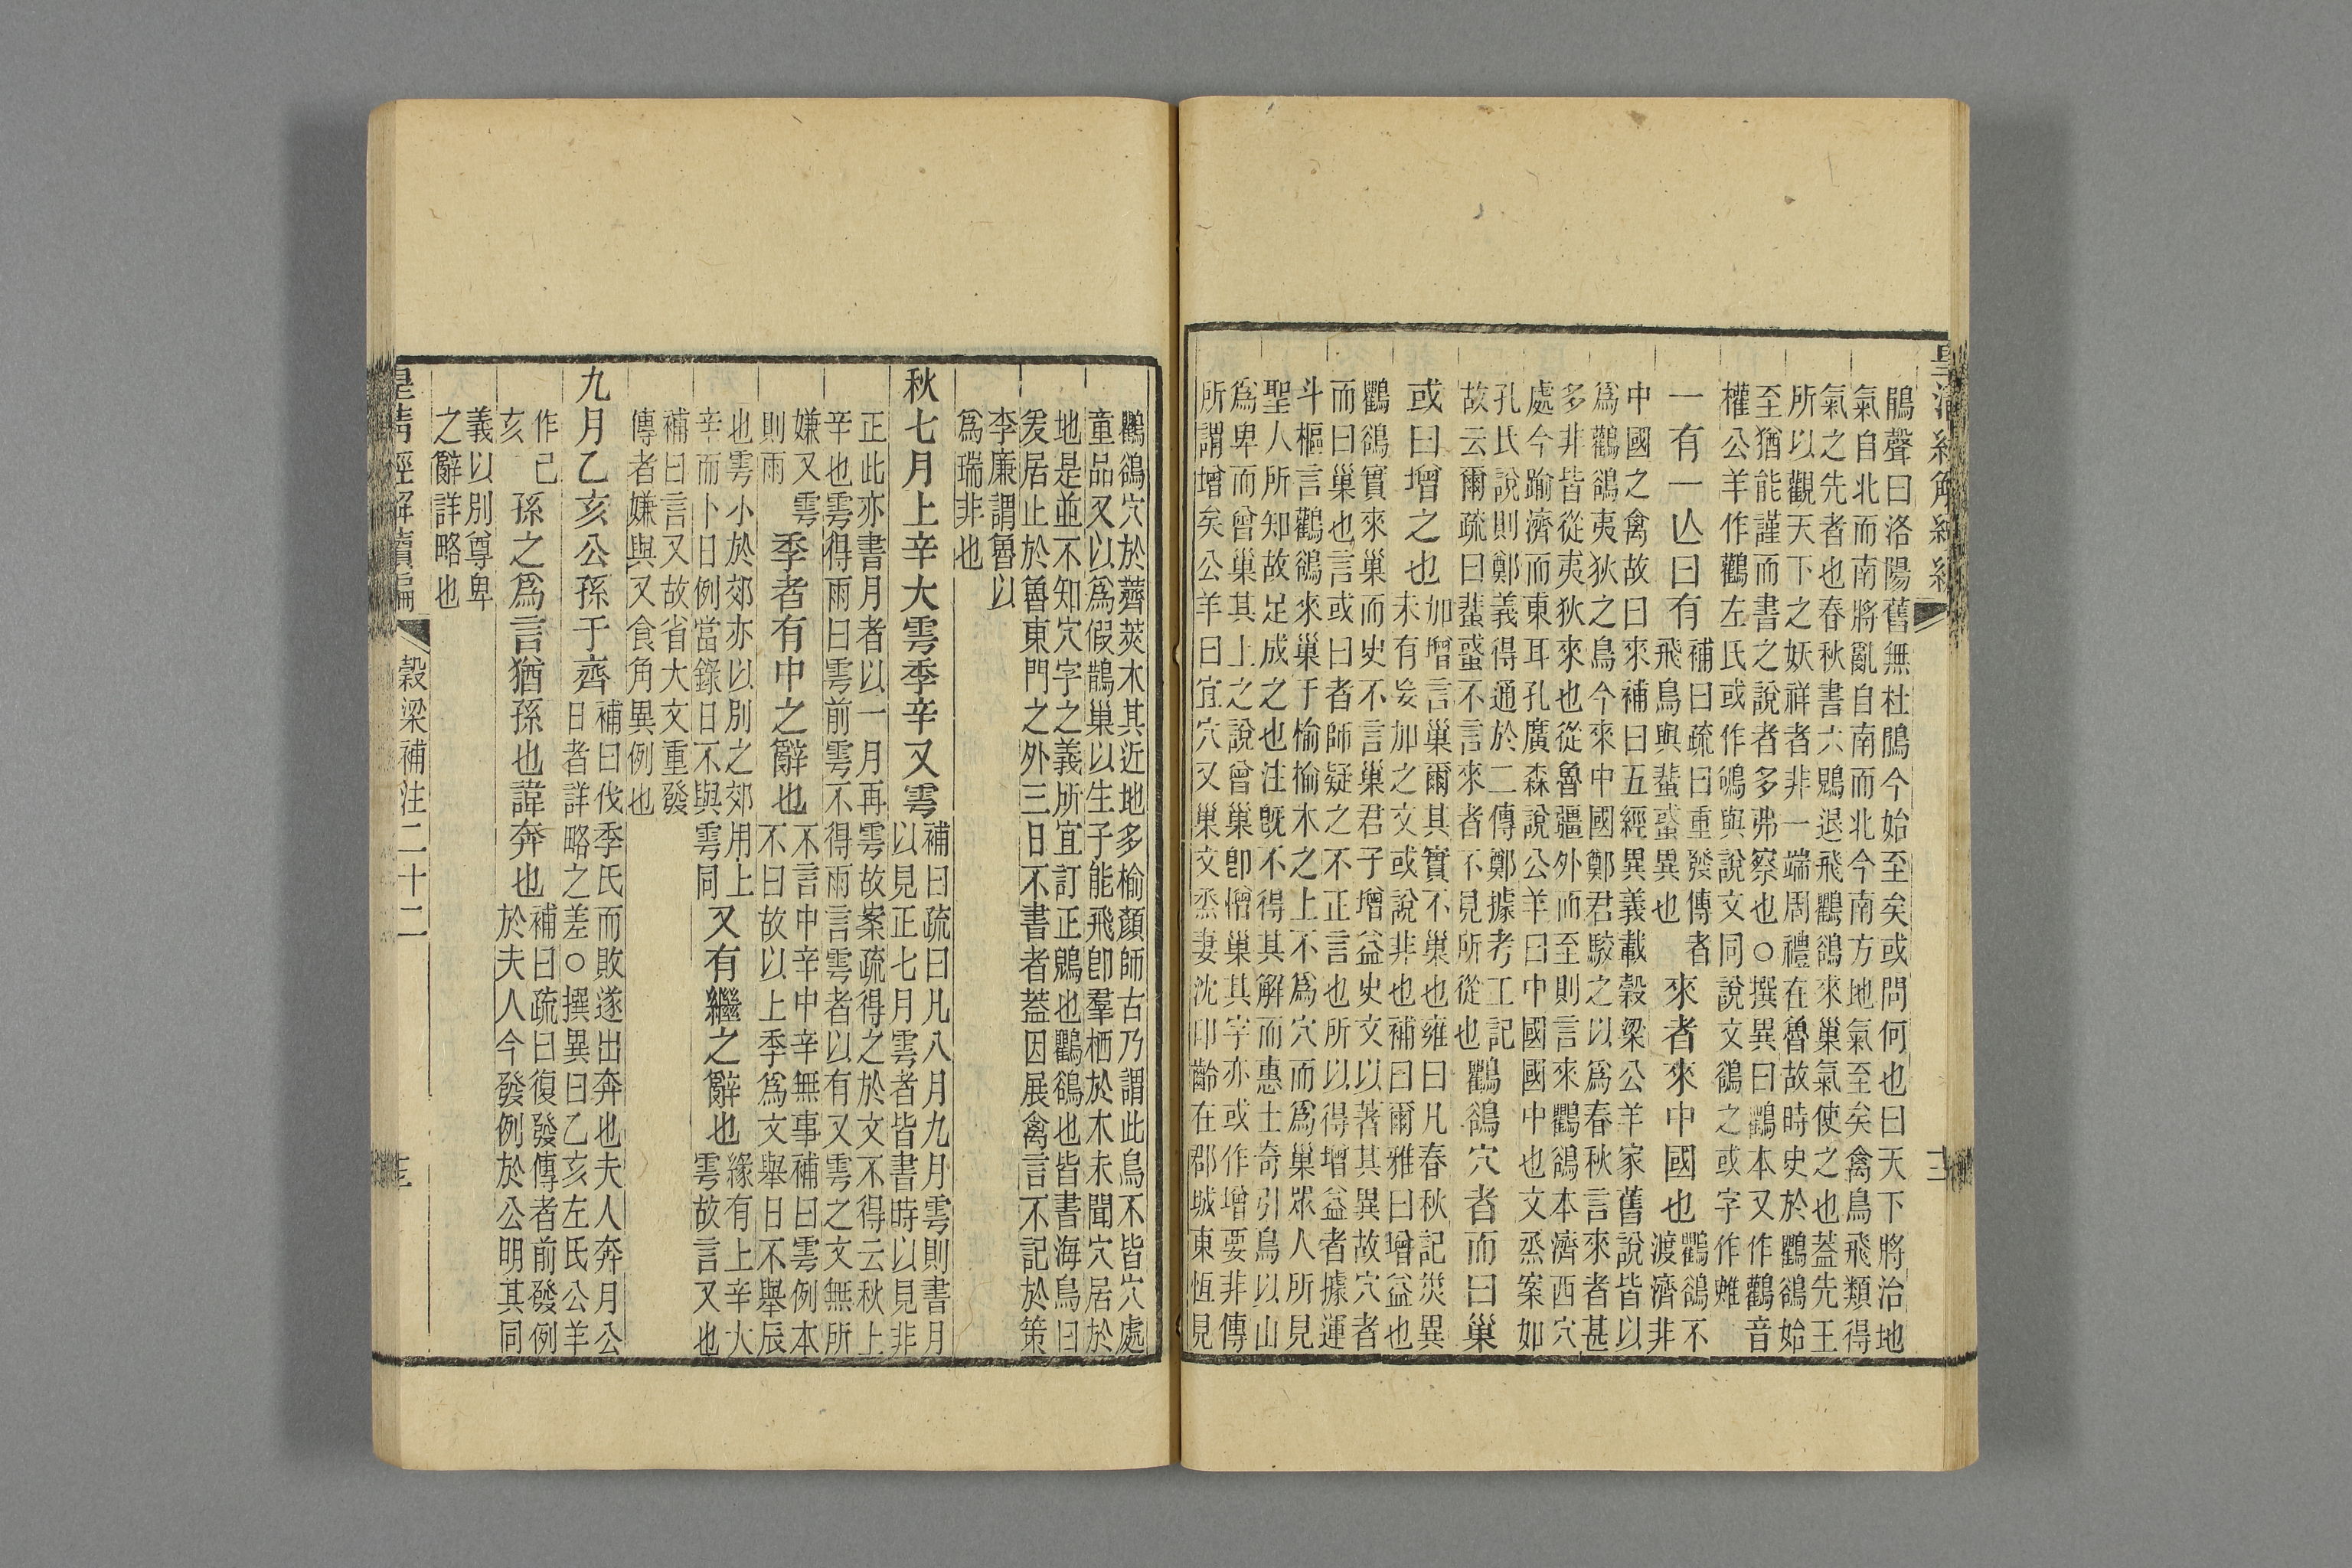 皇清經解續編
鵑聲曰洛陽舊無杜鵑今始至矣或問何也曰天下將治地
氣自北而南將亂自南而北今南方地氣至矣禽鳥飛類得
氣之先者也春秋書六鶂退飛鸜鵒來巢氣使之也蓋先王
所以觀天下之妖祥者非一端周禮在魯故時史於鸜鵒始
至猶能謹而書之說者多弗察也○撰異曰鸜本又作鸛音
權公羊作鸛左氏或作鴝與說文同說文鵒之或字作䧿
一有一亾曰有
補曰疏曰重發傳者
飛鳥與蜚蜮異也
來者來中國也
鸜鵒不
渡濟非
中國之禽故曰來補曰五經異義載穀梁公羊家舊說皆以
爲鸛鵒夷狄之鳥今來中國鄭君駮之以爲春秋言來者甚
多非皆從夷狄來也從魯疆外而至則言來鸜鵒本濟西穴
處今踰濟而東耳孔廣森說公羊曰中國國中也文烝案如
孔氏說則鄭義得通於二傳鄭據考工記
故云爾疏曰蜚蜮不言來者不見所從也
鸜鵒穴者而曰巢
或曰增之也
加增言巢爾其實不巢也雍曰凡春秋記災異
未有妄加之文或說非也補曰爾雅曰增益也
鸜鵒實來巢而史不言巢君子增益史文以著其異故穴者
而曰巢也言或曰者師疑之不正言也所以得增益者據運
斗樞言鸜鵒來巢于榆榆木之上不爲穴而爲巢眾人所見
聖人所知故足成之也注旣不得其解而惠士奇引鳥以山
爲卑而曾巢其上之說曾巢卽憎巢其字亦或作增要非傳
所謂增矣公羊曰宜穴又巢文烝妻沈印齡在郡城東恆見
鸜鵒穴於薺莢木其近地多榆顏師古乃謂此鳥不皆穴處
童品又以爲假鵲巢以生子能飛卽羣栖於木未聞穴居於
地是並不知穴字之義所宜訂正鶂也鸜鵒也皆書海鳥曰
爰居止於魯東門之外三日不書者蓋因展禽言不記於策
李廉謂魯以
爲瑞非也
秋七月上辛大雩季辛又雩
補曰疏曰凡八月九月雩則書月
以見正七月雩者皆書時以見非
正此亦書月者以一月再雩故案疏得之於文不得云秋上
辛也雩得雨曰雩前雩不得雨言雩者以有又雩之文無所
嫌又雩
則雨
季者有中之辭也
不言中辛中辛無事補曰雩例本
不曰故以上季爲文舉日不舉辰
也雩小於郊亦以別之郊用上
辛而卜日例當錄日不與雩同
又有繼之辭也
緣有上辛大
雩故言又也
補曰言又故省大文重發
傳者嫌與又食角異例也
九月乙亥公孫于齊
補曰伐季氏而敗遂出奔也夫人奔月公
日者詳略之差○撰異曰乙亥左氏公羊
作己
亥
孫之爲言猶孫也諱奔也
補曰疏曰復發傳者前發例
於夫人今發例於公明其同
義以別尊卑
之辭詳略也
皇清經解續編
穀梁補注二十二